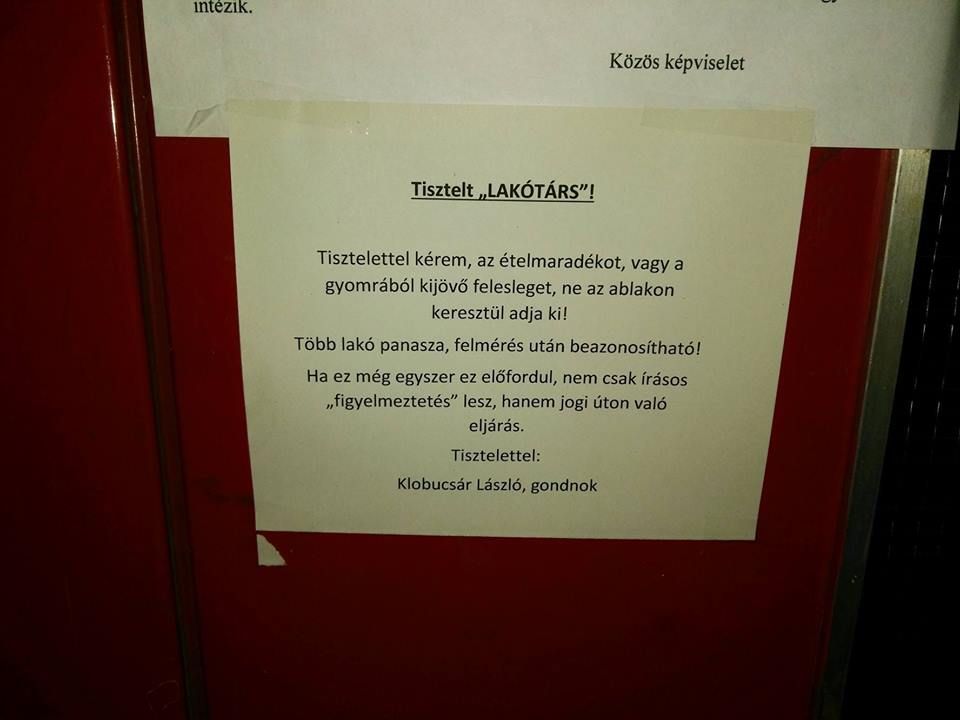 intézik.
Közös képviselet
Tisztelt „LAKÓTÁRS”!
Tisztelettel kérem, az ételmaradékot, vagy a
gyomrából kijövő felesleget, ne az ablakon
keresztül adja ki!
Több lakó panasza, felmérés után beazonosítható!
Ha ez még egyszer ez előfordul, nem csak írásos
„figyelmeztetés” lesz, hanem jogi úton való
eljárás.
Tisztelettel:
Klobucsár László, gondnok